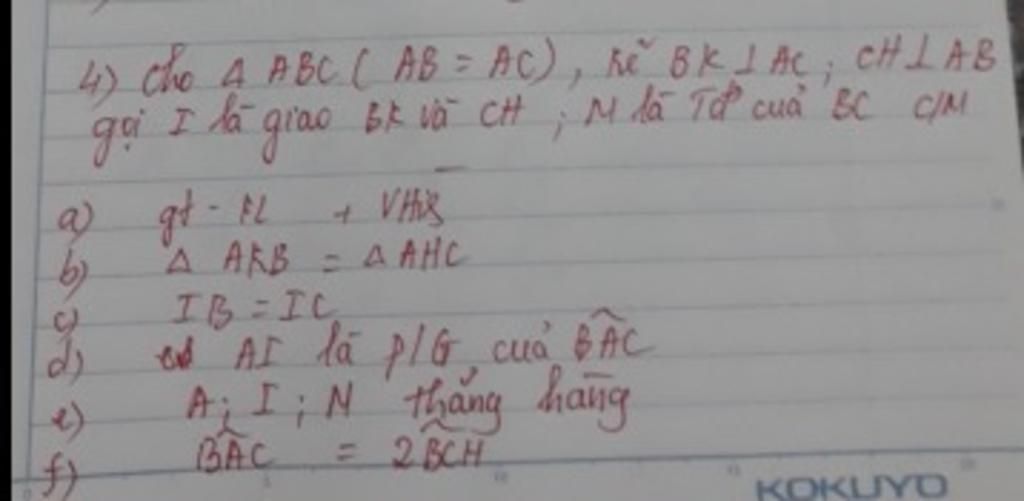 4) Cho Δ ABC ( AB = AC), kẻ BK ⊥ AC; CH ⊥ AB
gọi I là giao BK và CH ; N là Tđ cuả BC C/M
a) gt - KL + VHìh
b) Δ AKB = Δ AHC
c) IB = IC
d) AI là p/G cuả BAC
e) A; I; N thẳng hàng
f) BAC = 2BCH
KOKUYO